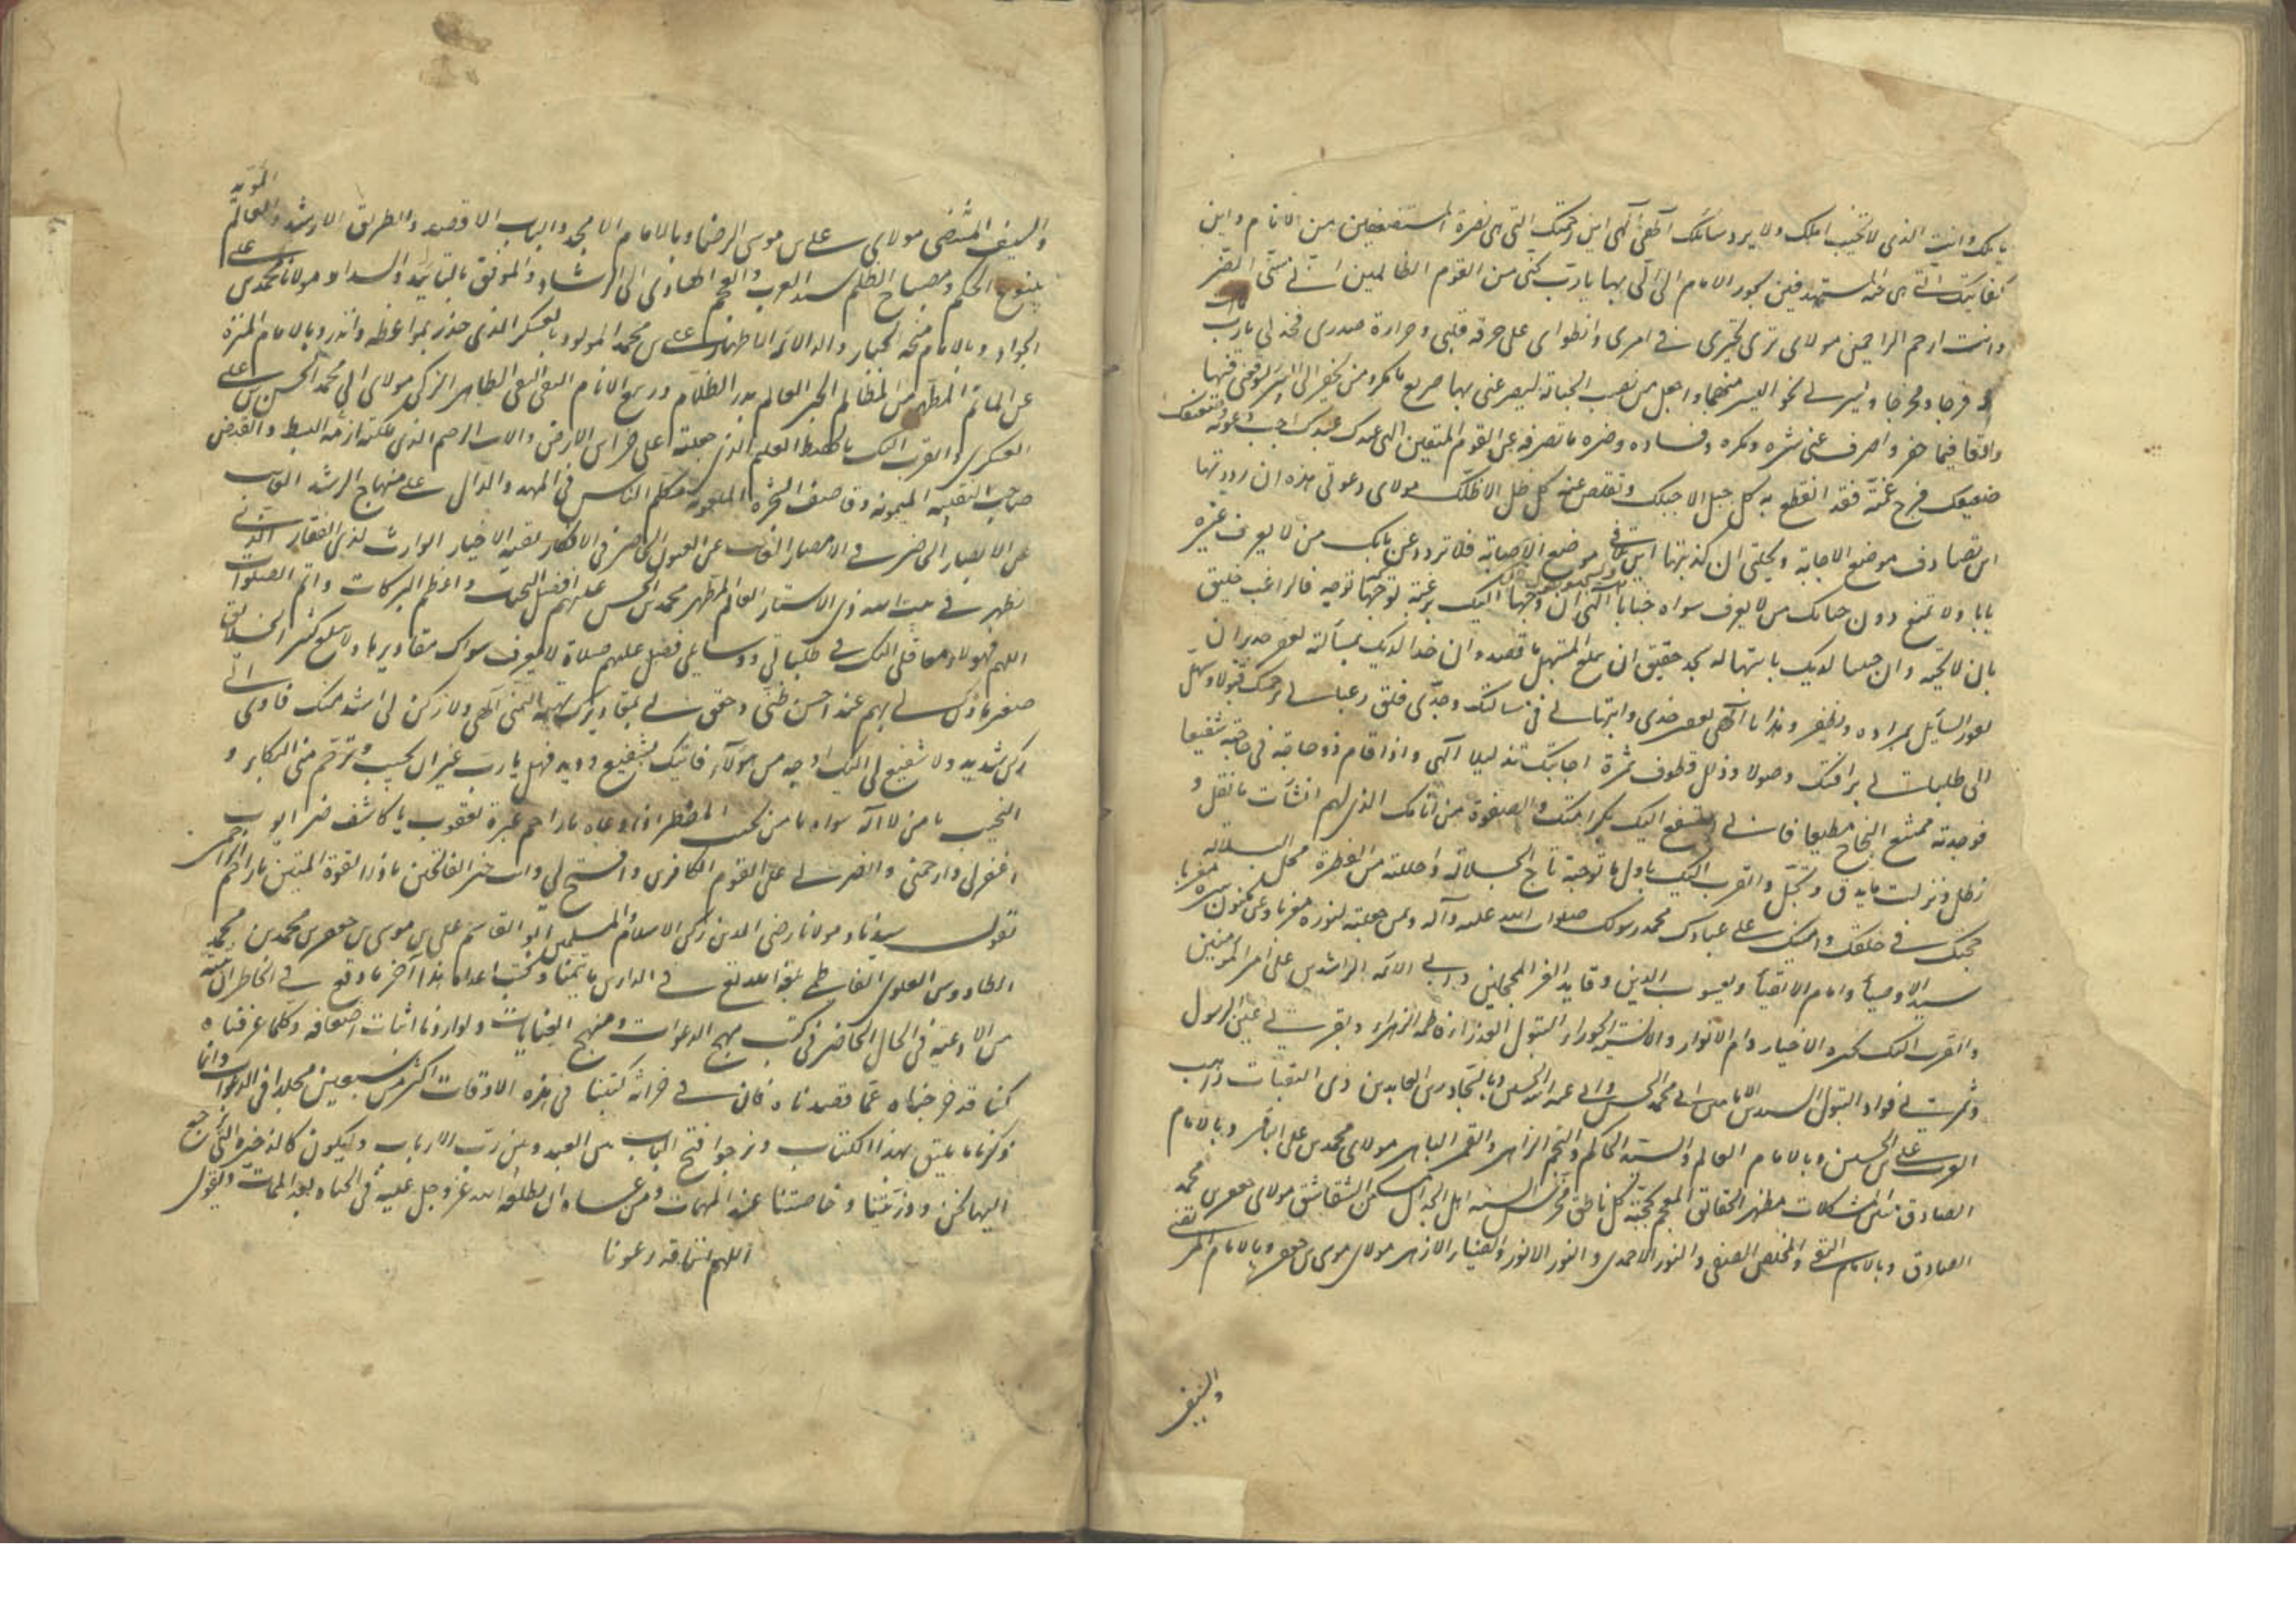 بابك وانت الذی لا تخیب املك ولا یرد سائلك آلهی آلهی این رحمتك التی هی نصرة المستضعفین من الانام واین
كفایتك التی هی جنة المستهدفین بجور الایام الیّ الیّ بها یارب نجنی من القوم الظالمین انی مسنی الضر
وانت ارحم الراحمین مولای تری تحیری فی امری وانطوای علی حرقة قلبی وحرارة صدری فجد لی یارب
فرجا ومخرجا ویسر لی نحو الیسر منهجا واجعل من نصب الحبالة لیصرعنی بها صریع ما مكر ومن یحفر الی البئر لیوقعنی فیها
واقعا فیما حفر واصرف عنی شره ومكره وفساده وضره ما تصرفه عن القوم المتقین الهی عبدك عبدك اجب دعوته ضعیفك
ضعیفك فرج غمته فقد انقطع به كل حبل الا حبلك وتقلص عنه كل ظل الا ظلك مولای دعوتی هذه ان رددتها
این تصادف موضع الاجابة ومخیلتی ان كذبتها این تلاقی موضع الاصابة فلا تردد عن بابك من لا یعرف غیره
بابا ولا تمنع دون جنابك من لا یعرف سواه جنابا آلهی ان وجها الیك برغبة توجها توجه فالراغب خلیق
بان لا تخیبه وان جبینا لدیك بابتهاله سجد حقیق ان یبلغ المبتهل ما قصد وان خدا لدیك بمسألته تعفر جدیر ان
یفوز السایل بمراده ویظفر وهذا یا آلهی تعفر خدی وابتهالی فی مسالتك وجدی فلق رغباتی برحمتك قبولا وسهل
الی طلباتی برافتك وصولا وذلل قطوف ثمرة اجابتك تذلیلا آلهی واذا قام ذو حاجة فی حاجته شفیعا
فوجدته ممتنع النجاح مطیعا فانی استشفع الیك بكرامتك والصفوة من انامك الذی لهم انشأت ما تقل و
تظل ونزلت ما یدق ویجل واتقرب الیك باول ما توجته تاج الجلالة واحللته من الفطرة محل السلالة
حجتك فی خلقك وامینك علی عبادك محمد رسولك صلوات الله علیه وآله ومن جعلته لنوره مغربا وعن مكنون سره معربا
سید الاوصیأ وامام الاتقیأ ویعسوب الدین وقاید الغر المحجلین وابی الائمة الراشدین علی امیر المومنین
واتقرب الیك بخیرة الاخیار وام الانوار والانسیة الحوراء البتول العذراء فاطمة الزهراء وبقرتی عین الرسول
وثمرتی فواد البتول السیدین الامامین ابی محمد الحسن وابی عبد الله الحسین وبالسجاد زین العابدین ذی الثفنات راهب
العرب علی بن الحسین وبالامام العالم والسید الحاكم والنجم الزاهر والقمر الباهر مولای محمد بن علی الباقر وبالامام
الصادق مبین المشكلات مظهر الحقائق المفحم بحجته كل ناطق مخرس السنة اهل الجدال مسكن الشقاشق مولای جعفر بن محمد
الصادق وبالامام التقی والمخلص الصفی والنور الاحمدی والنور الانور والضیاء الازهر مولای موسی بن جعفر وبالامام المرتضی
والسیف
والسیف المنتضی مولای علی بن موسی الرضا وبالامام الامجد والباب الاقصد والطریق الارشد والعالم المؤید
ینبوع الحكم ومصباح الظلم سید العرب والعجم الهادی الی الرشاد والموفق بالتایید والسداد مولانا محمد بن علی
الجواد وبالامام منحة الجبار ووالد الائمة الاطهار علی بن محمد المولود بالعسكر الذی حذر بمواعظه وانذر وبالامام المنزه
عن الماثم المطهر من المظالم الحبر العالم بدر الظلام وربیع الانام التقی النقی الطاهر الزكی مولای ابی محمد الحسن بن علی
العسكری واتقرب الیك بالحفیظ العلیم الذی جعلته علی خزاین الارض والاب الرحیم الذی ملكته ازمة البسط والقبض
صاحب النقیبة المیمونة وقاصف الشجرة الملعونة مكلم الناس فی المهد والدال علی منهاج الرشد الغایب
عن الابصار الحاضر فی الامصار الغایب عن العیون الحاضر فی الافكار بقیة الاخیار الوارث لذی الفقار الذی
یظهر فی بیت الله ذی الاستار العالم المطهر محمد بن الحسن علیهم افضل التحیات واعظم البركات واتم الصلوات
اللهم فهولاء معاقلی الیك فی طلباتی ووسایلی فصل علیهم صلاة لا یعرف سواك مقادیرها ولا یبلغ كثیر الخلایق
صغیرها وكن لی بهم عند احسن ظنی وحقق لی بمقادیرك تهیة التمنی آلهی لا ركن لی اشد منك فاوی الی
ركن شدید ولا شفیع لی الیك اوجه من هؤلآء فاتیك بشفیع ودید فهل یارب غیر ان تجیب وترحم منی البكاء و
النحیب یا من لا اله سواه یا من یجیب المضطر اذا دعاه یا راحم عبرة یعقوب یا كاشف ضر ایوب
اغفر لی وارحمنی وانصرنی علی القوم الكافرین وافتح لی وانت خیر الفاتحین یا ذا القوة المتین یا ارحم الراحمین
تقول سیدنا ومولانا رضی الدین ركن الاسلام والمسلمین ابو القاسم علی بن موسی بن جعفر بن محمد بن محمد
الطاووس العلوی الفاطمی بلغه الله تع فی الدارین ما یتمناه وكبت اعداه هذا آخر ما وقع فی الخاطر اثباته
من الادعیة فی الحال الحاضر فی كتب مهج الدعوات ومنهج العنایات ولو اردنا اثبات اضعافه وكلما عرفناه
كنا قد خرجناه عما قصدناه فان فی خزانة كتبنا فی هذه الاوقات اكثر من سبعین مجلدا فی الدعوات وانما
ذكرنا ما یلیق بهذا الكتاب ونرجوا فتح الباب بین العبد وبین رب الارباب ولیكون كالذخیرة التی نرجع
الیها نحن وذریتنا وخاصتنا عند المهمات ومن عساه ان یطلعه الله عز وجل علیه فی الحیاه بعد الممات ونقول
اللهم اننا قد دعونا